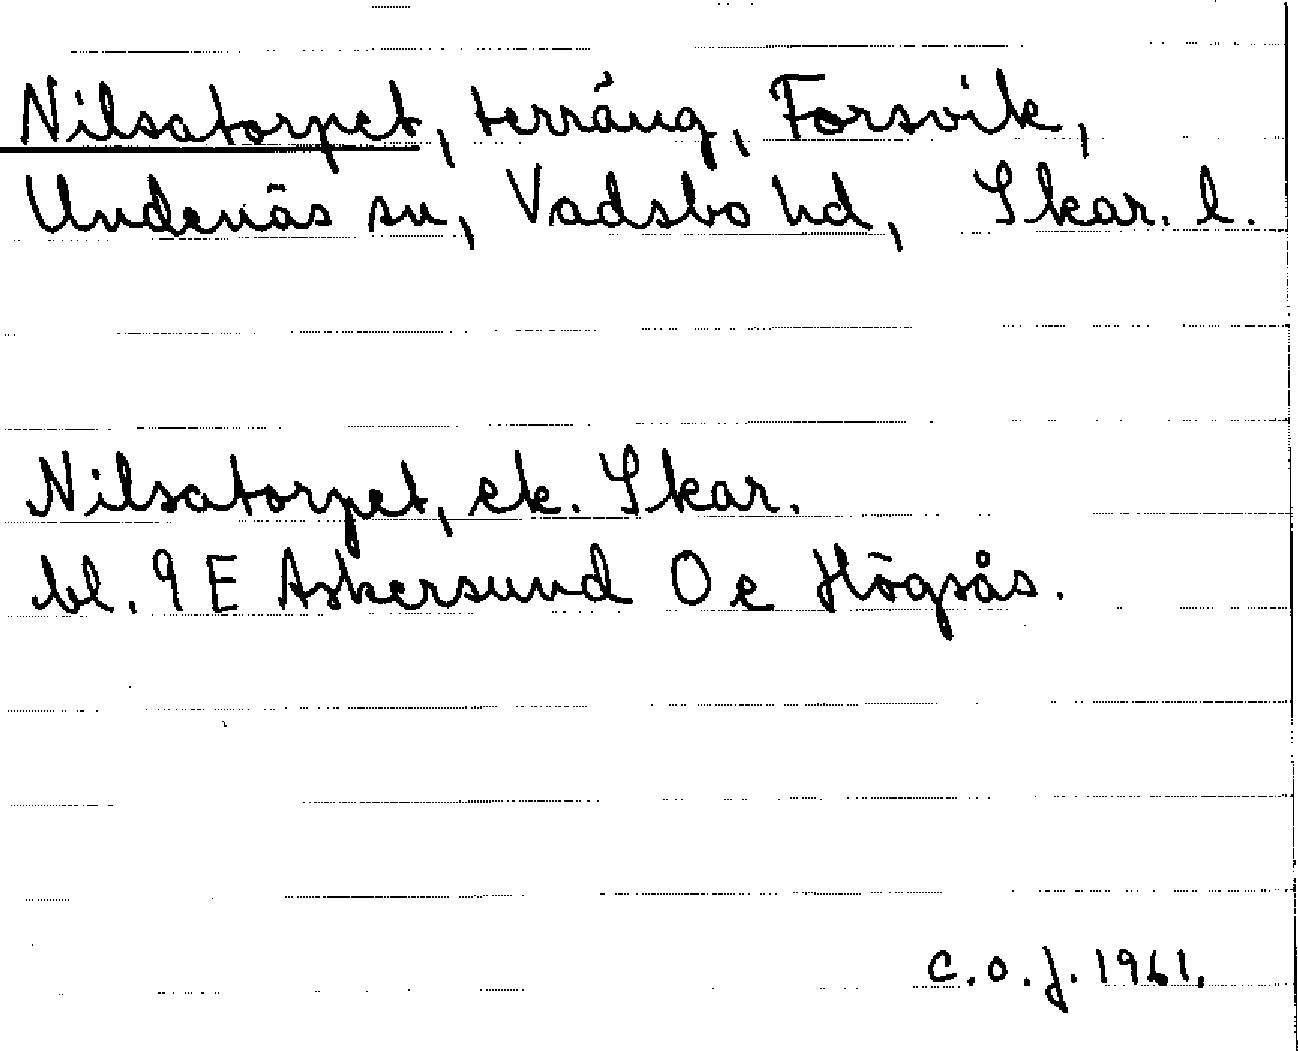 Nilsatorpet, terräng, Forsvik,
Undenäs sn, Vadsbo hd, Skar. l.
Nilsatorpet, ek. Skar.
bl. 9 E Askersund 0 e Högsås.
C.O.J. 1961.